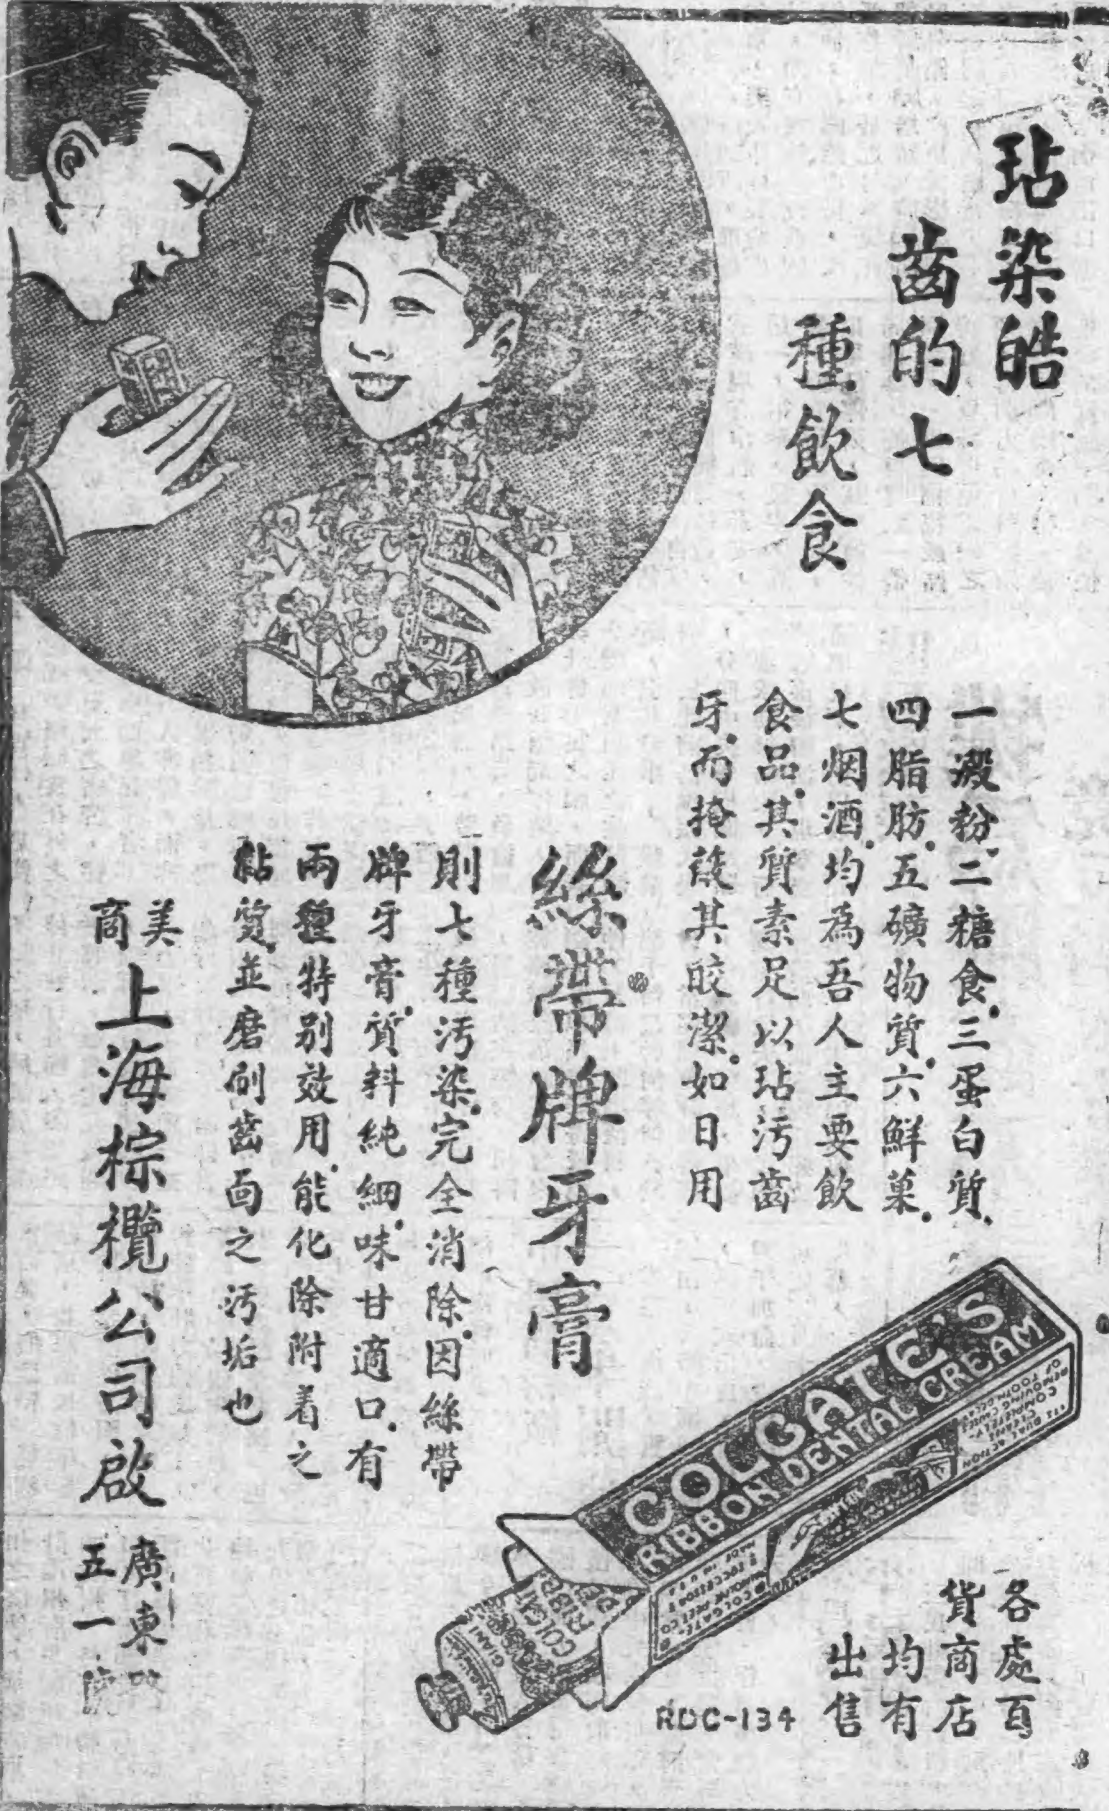 玷染皓
齒的七
種飲食
一澱粉.二糖食.三蛋白質.
四脂肪.五礦物質.六鮮菓.
七烟酒.均為吾人主要飲
食品.其質素足以玷污齒
牙.而掩蔽其皎潔.如日用
絲帶牌牙膏
則七種污染.完全消除.因絲帶
牌牙膏.質料純細.味甘適口.有
兩種特別效用.能化除附着之
黏質.並磨刷齒面之污垢也
美商
上海棕欖公司啟
廣東
五一
COLGATE'S
RIBBON DENTAL CREAM
各處百
貨商店
均有
出售
RDC-134